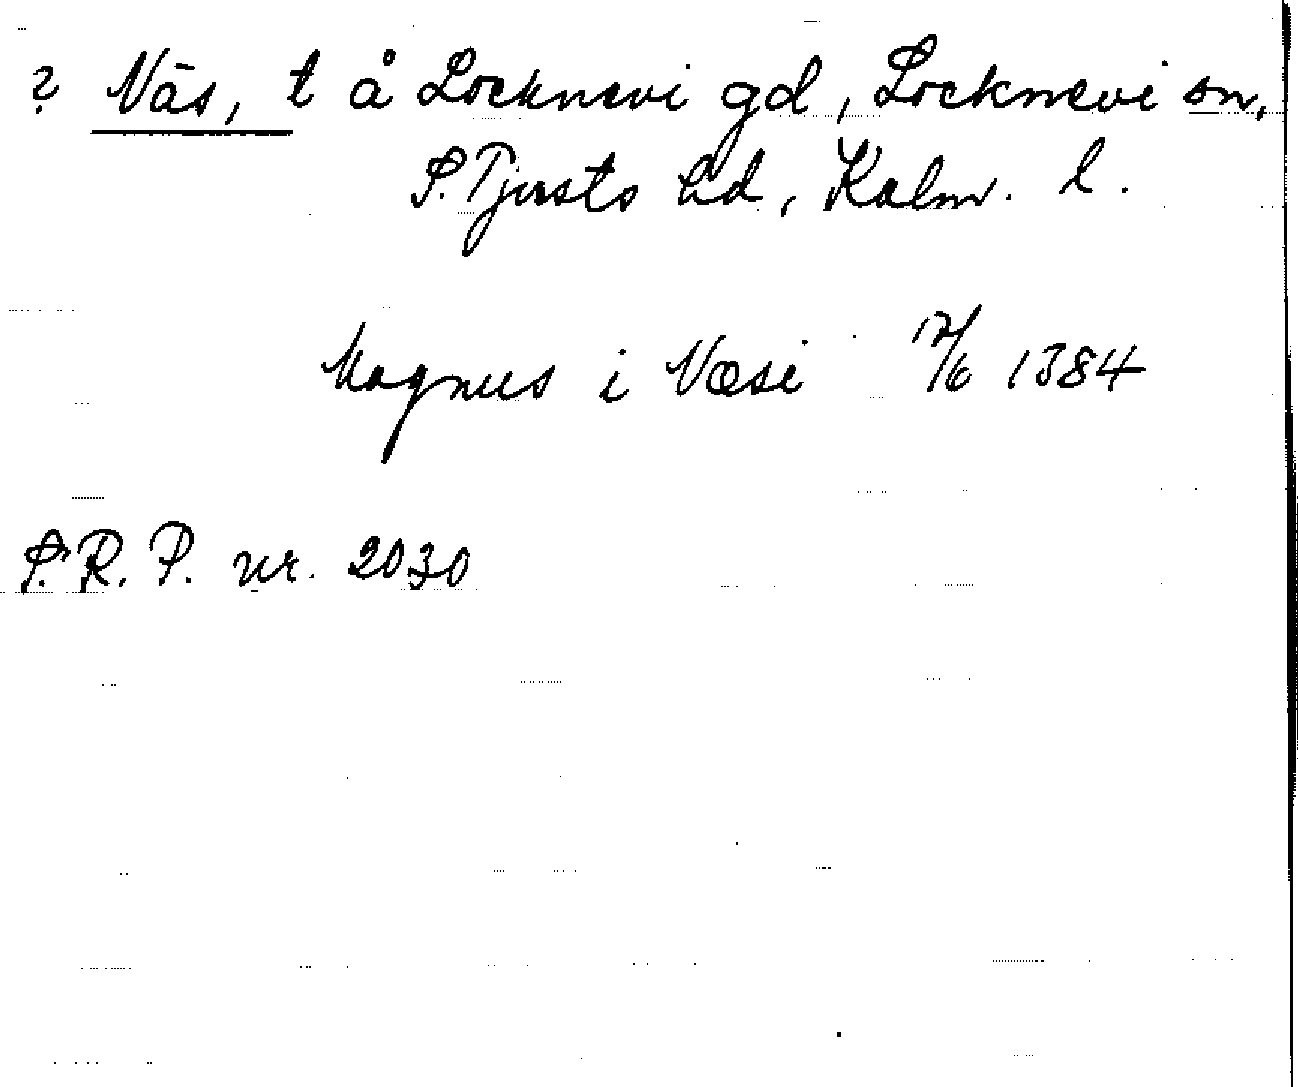 ? Näs, t å Locknevi gd, Locknevi sn,
S. Tjusts hd, Kalm. l.
Magnus i Næsi 12/6 1384
S.R.P. nr. 2030